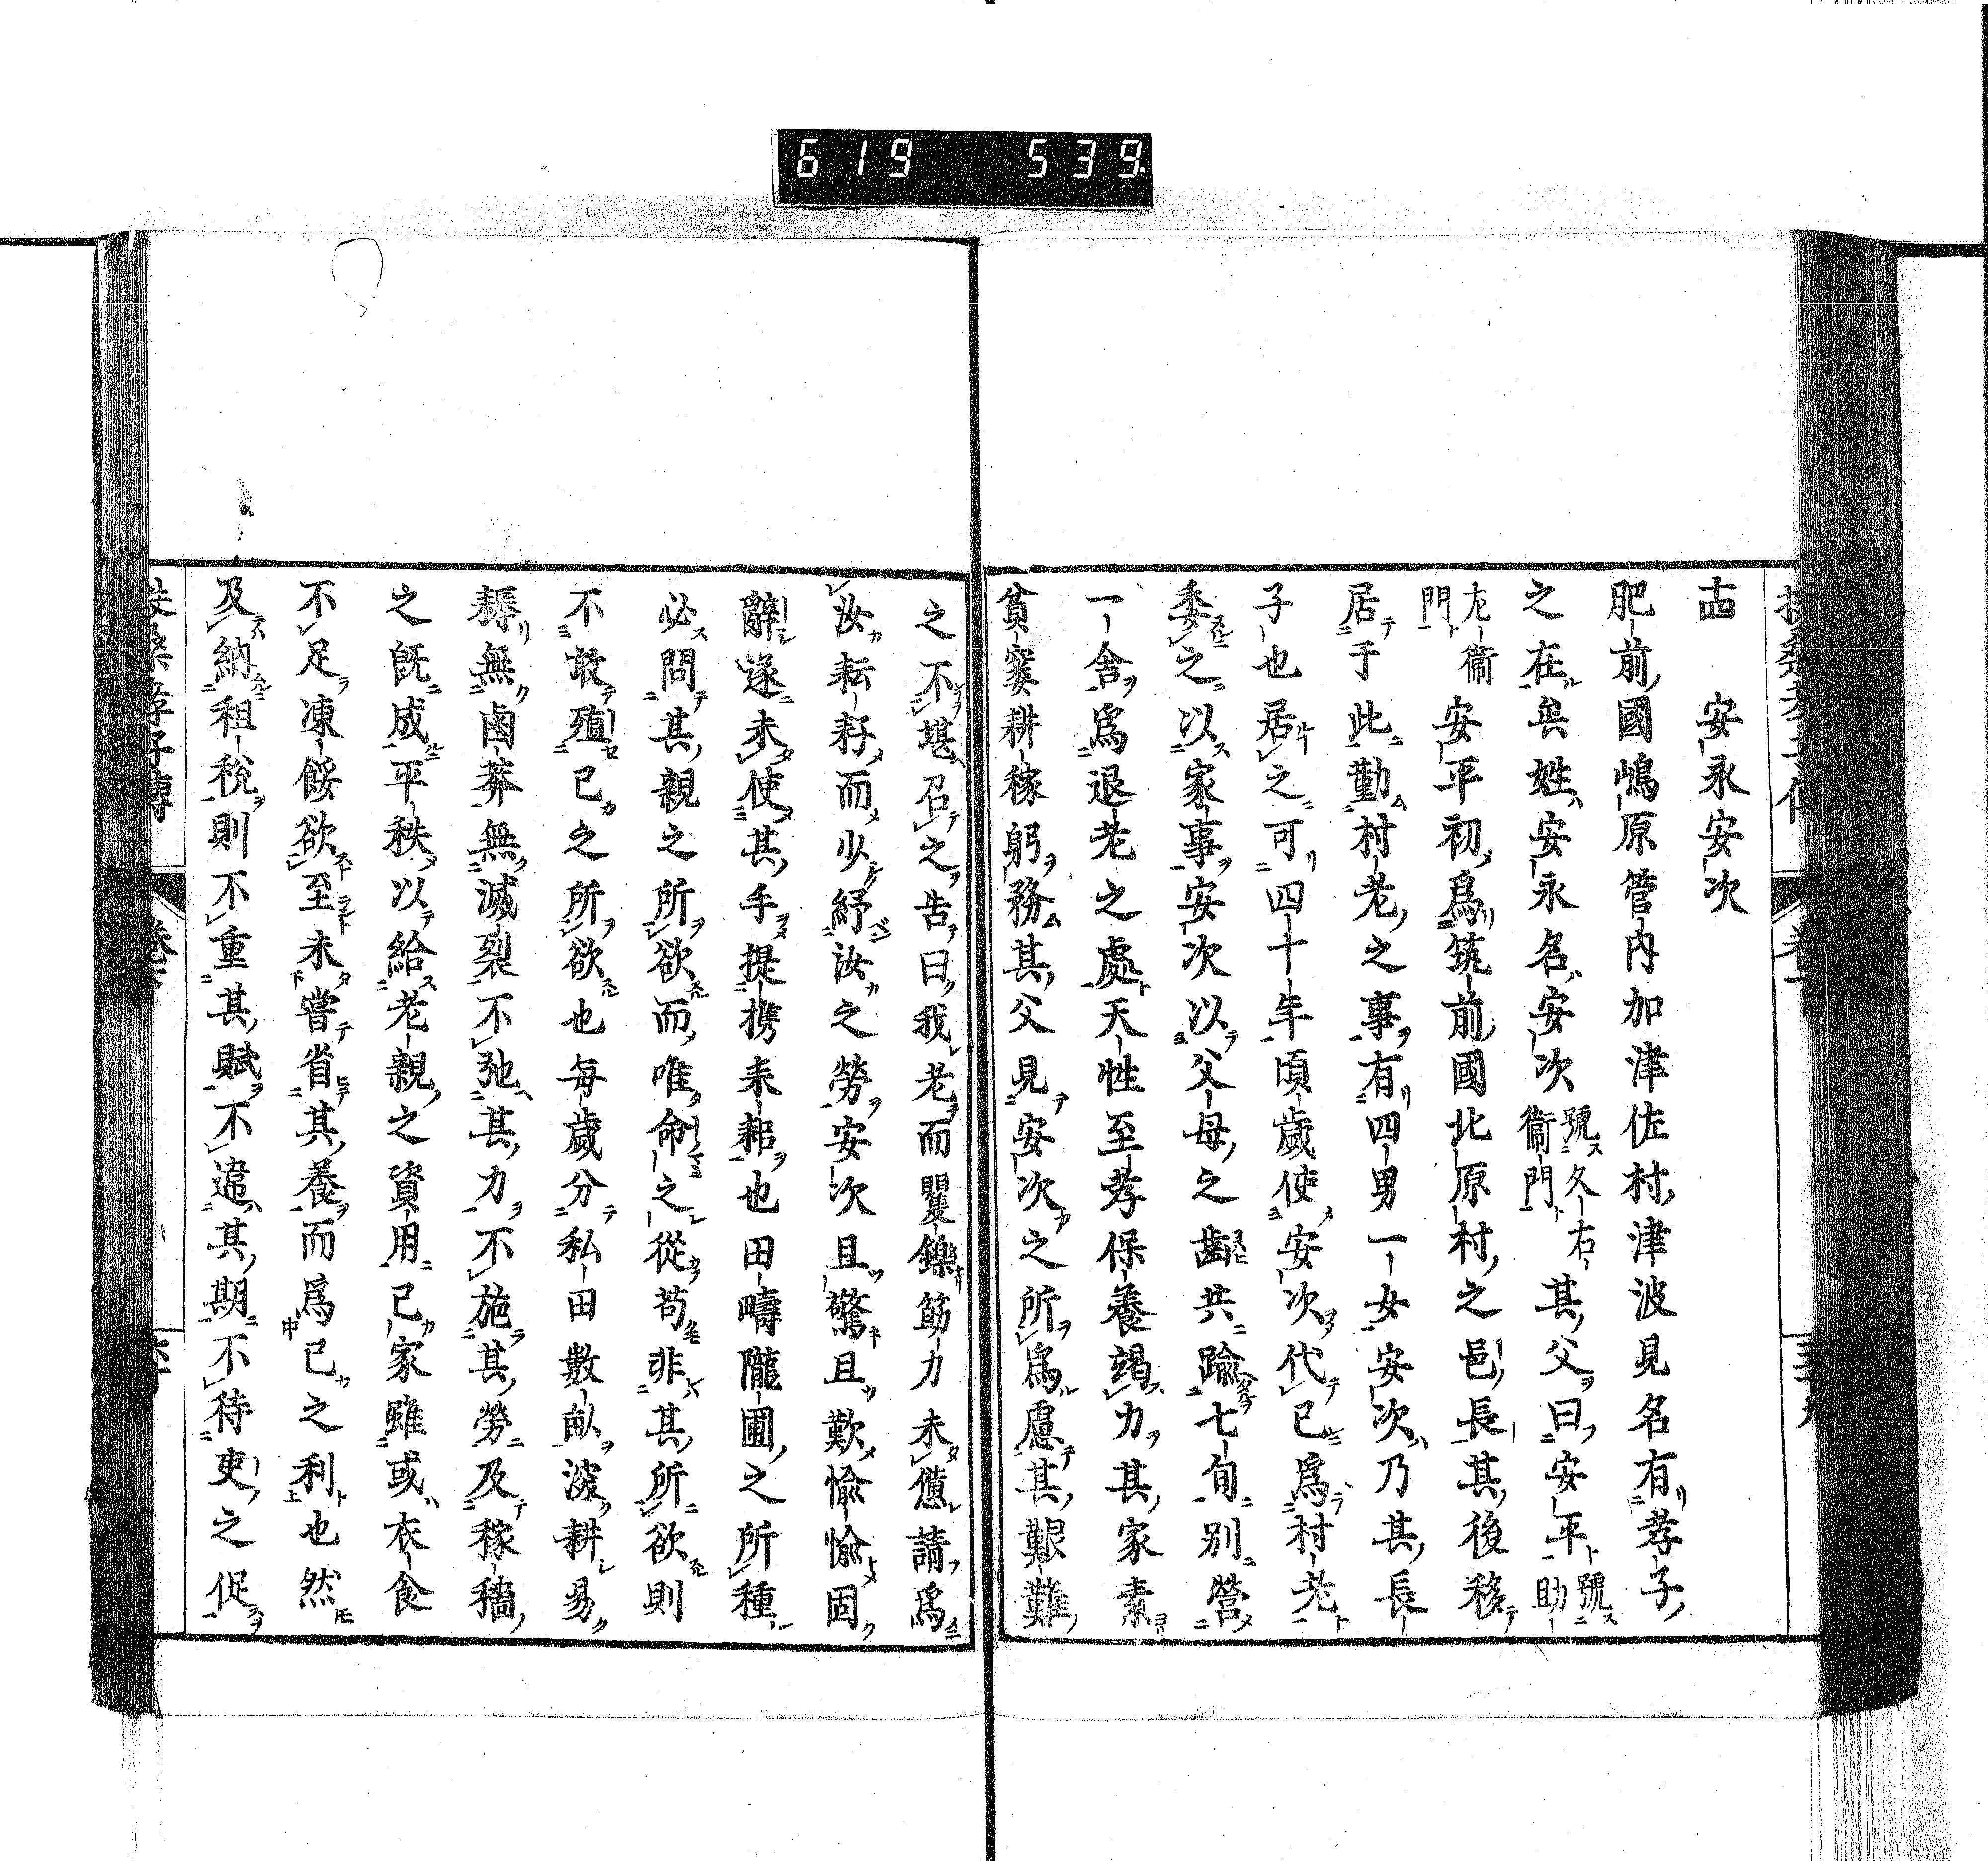 619 539.
十四 安永安次
肥前國嶋原管内加津佐村津波見名有孝子
之在矣姓安永名安次號久右衞門其父曰安平號助
左衞門安平初爲筑前國北原村之邑長其後移
居于此勤村老之事有四男一女安次乃其長
子也居之可四十年頃歲使安次代已爲村老
委之以家事安次以父母之齒共踰七旬別營
一舍爲退老之處天性至孝保養竭力其家素
貧窶耕稼躬務其父見安次之所爲慮其艱難
之不堪召之告曰我老而矍鑠筋力未憊請爲
汝耘耔而少紓汝之勞安次且驚且歎愉愉固
辭遂未使其手提携耒耜也田疇隴圃之所種
必問其親之所欲而唯命之從苟非其所欲則
不敢殖已之所欲也每歲分私田數畝深耕易
耨無鹵莽無滅裂不弛其力不施其勞及稼穡
之旣成平秩以給老親之資用已家雖或衣食
不足凍餒欲至未嘗省其養而爲已之利也然
及納租稅則不重其賦不違其期不待吏之促